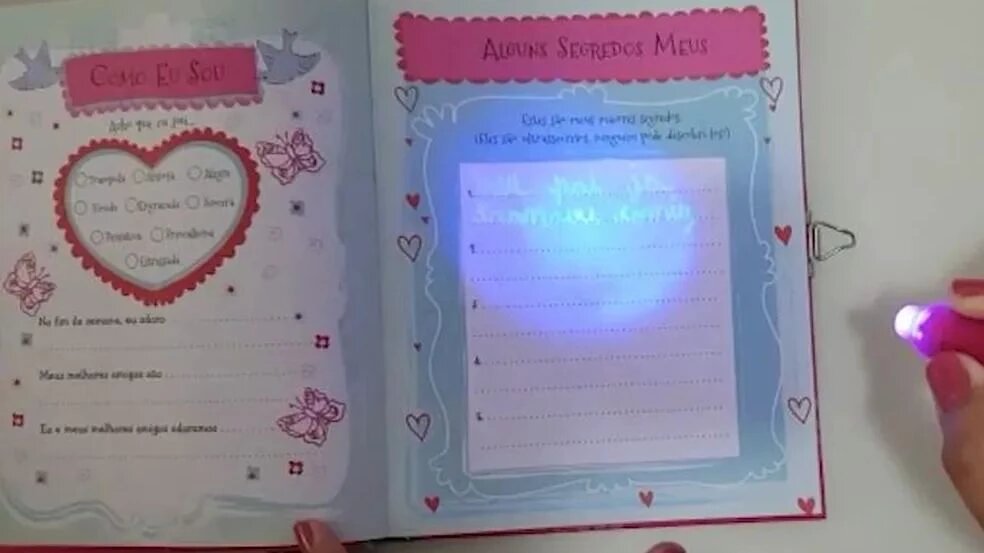 COMO EU SOU
Acho que eu sou...
Tranquila
Alegre
Tímida
Engraçada
Sincera
Pensativa
Preocupada
Estressada
No fim de semana, eu adoro
Meus melhores amigos são
Eu e meus melhores amigos adoramos
ALGUNS SEGREDOS MEUS
Estes são meus maiores segredos.
(Eles são ultrassecretos, ninguém pode descobri-los!)
1.
2.
3.
4.
5.